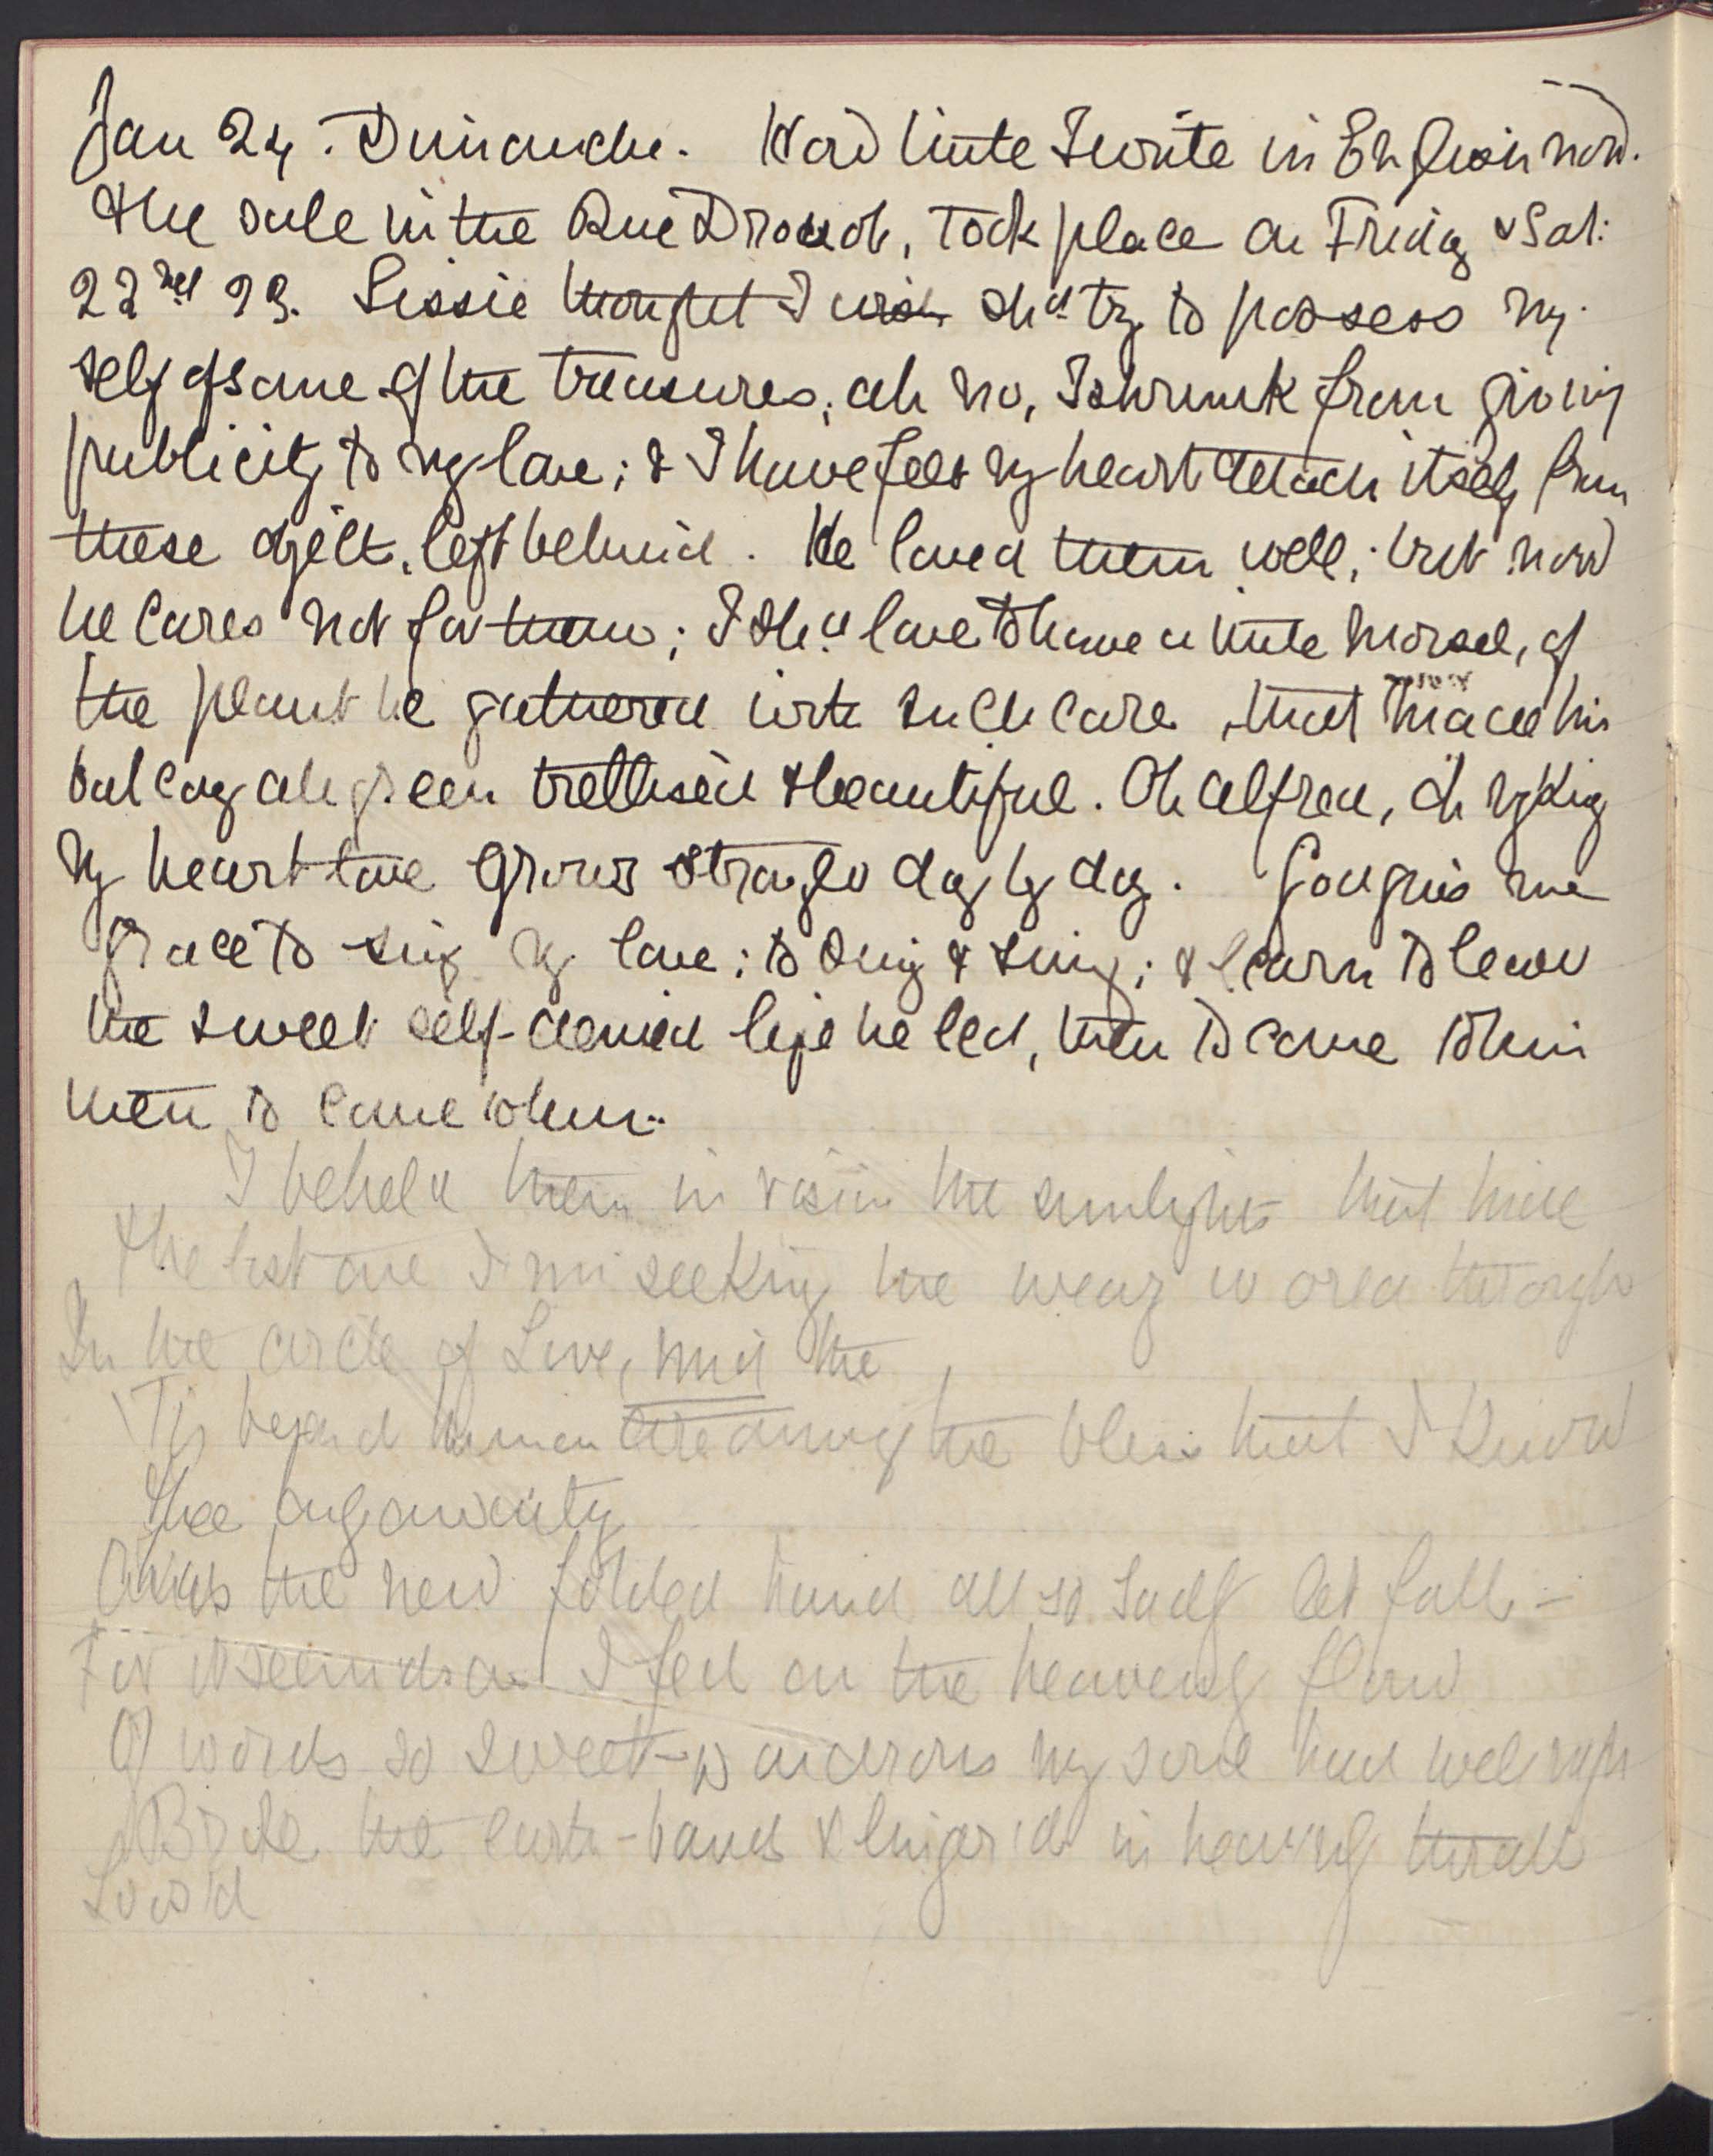 Jan 24. Dimanche. How little I write in English now.
The sale in the Rue Drouot, took place on Friday & Sat:
22nd 23. Lissie thought I wish shd try to possess my
self of some of the treasures; ah no, I shrunk from giving
publicity to my love; & I have felt my heart detach itself from
these objects, left behind. He loved them well; but now
he cares not for them; I shd love to have a little morsel, of
the plant he gathered with such care, that made his
balcony all green trellised & beautiful. Oh Alfred, oh my King
my heart-love grows stronger day by day. God give me
grace to sing my love; to sing & sing; & learn to lead
the sweet self-denied life he led, then to come to him
then to come to him..
I beheld them in vision the sunlight that
The lost one I'm seeking the weary world through
In the circle of Love, mid the
'Tis beyond human dreaming the bliss that I know
The
the new folded hand all so sadly let fall -
For it seemd as I fed on the heavenly flow
Of words so sweet - wondrous my soul had well nigh
Broke the earth-bands & linger'd in heav'nly thrall